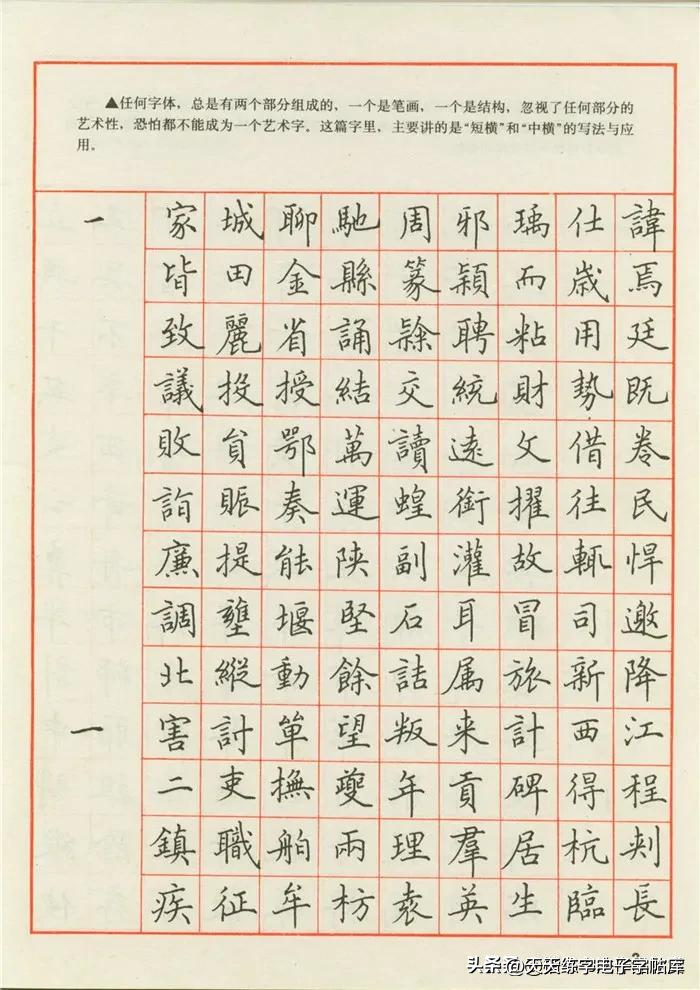 ▲任何字体，总是有两个部分组成的，一个是笔画，一个是结构，忽视了任何部分的
艺术性，恐怕都不能成为一个艺术字。这篇字里，主要讲的是“短横”和“中横”的写法与应
用。
一 家 城 聊 馳 周 邪 瑀 仕 諱
皆 田 金 縣 篆 穎 而 歲 焉
致 麗 省 誦 聘 粘 用 廷
議 投 授 結 交 統 財 勢 既
敗 貟 鄂 萬 讀 遠 文 借 卷
詣 賑 奏 運 蝗 銜 擢 往 民
廉 提 能 陝 副 灌 故 輒 悍
調 壅 堰 堅 石 耳 冒 司 邀
北 縱 動 餘 詁 属 旅 新 降
一 害 討 箄 望 叛 来 計 西 江
二 吏 撫 夔 年 貢 碑 得 程
鎮 職 舶 兩 理 羣 居 杭 刺
疾 征 牟 枋 袁 英 生 臨 長
头条@天天练字电子字帖库